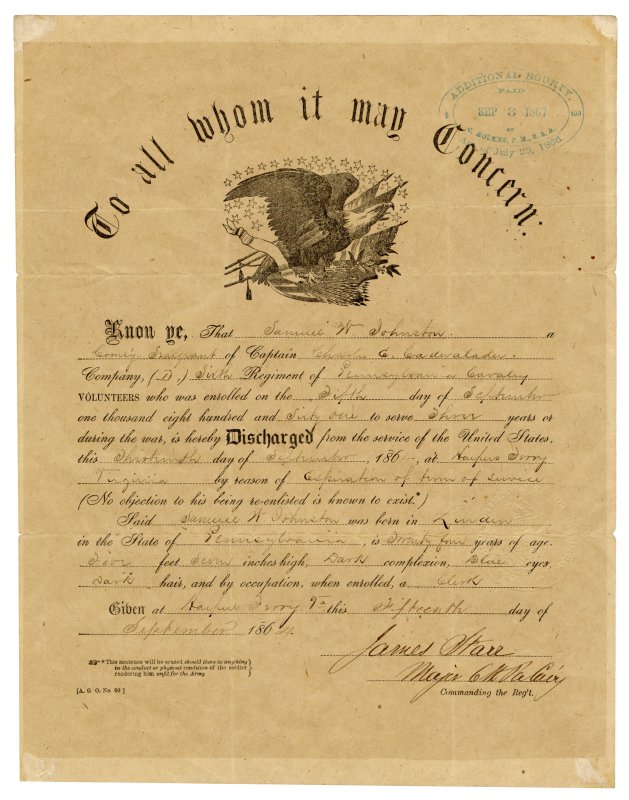 To all whom it may Concern:
ADDITIONAL BOUNTY,
PAID
SEP 3 1867
BY
HOLMES, P. M., U. S. A.
Act of July 28, 1866.
Know ye, That Samuel W Johnston a
Comsy Sergeant of Captain Charles E Cadwalader
Company, (D.) Sixth Regiment of Pennsylvania Cavalry
VOLUNTEERS who was enrolled on the Fifth day of September
one thousand eight hundred and Sixty one to serve Three years or
during the war, is hereby Discharged from the service of the United States,
this day of September, 1864, at Harpers Ferry
Virginia by reason of Expiration of term of service
(No objection to his being re-enlisted is known to exist.*)
Said Samuel W Johnston was born in Linden
in the State of Pennsylvania, is Twenty four years of age,
Five feet Seven inches high, Dark complexion, Blue eyes,
Dark hair, and by occupation, when enrolled, a Clerk
Given at Harpers Ferry Va this Fifteenth day of
September 1864.
James Starr
Major 6th Pa Cav'y
Commanding the Reg't.
* This sentence will be erased should there be anything
in the conduct or physical condition of the soldier
rendering him unfit for the Army
[A. G O. No 99]